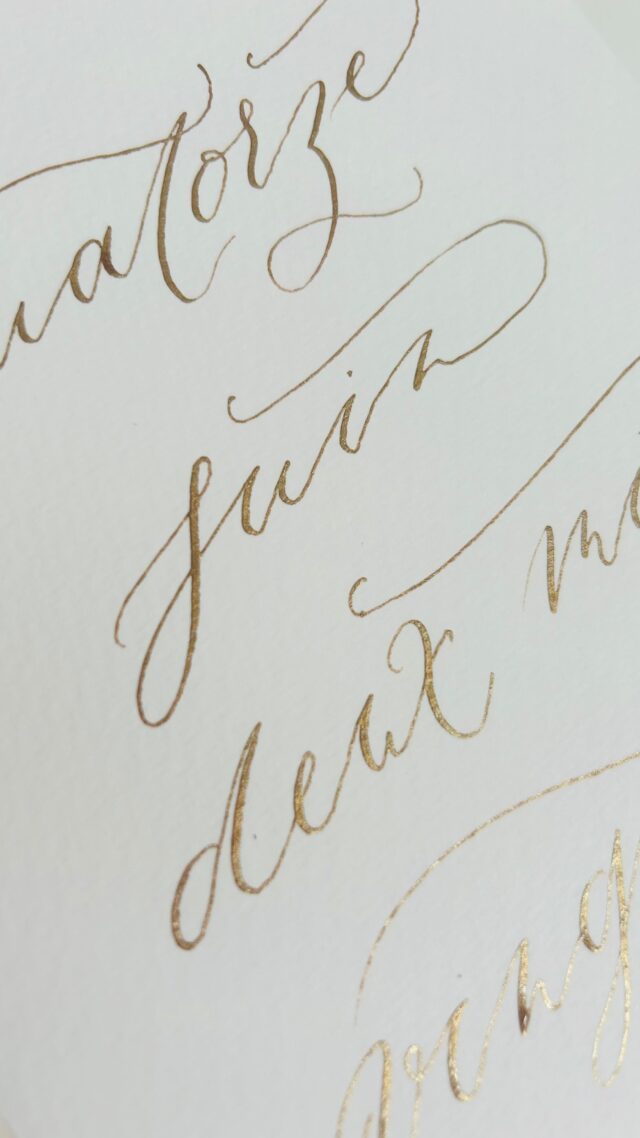 quatorze
juin
deux m
ving